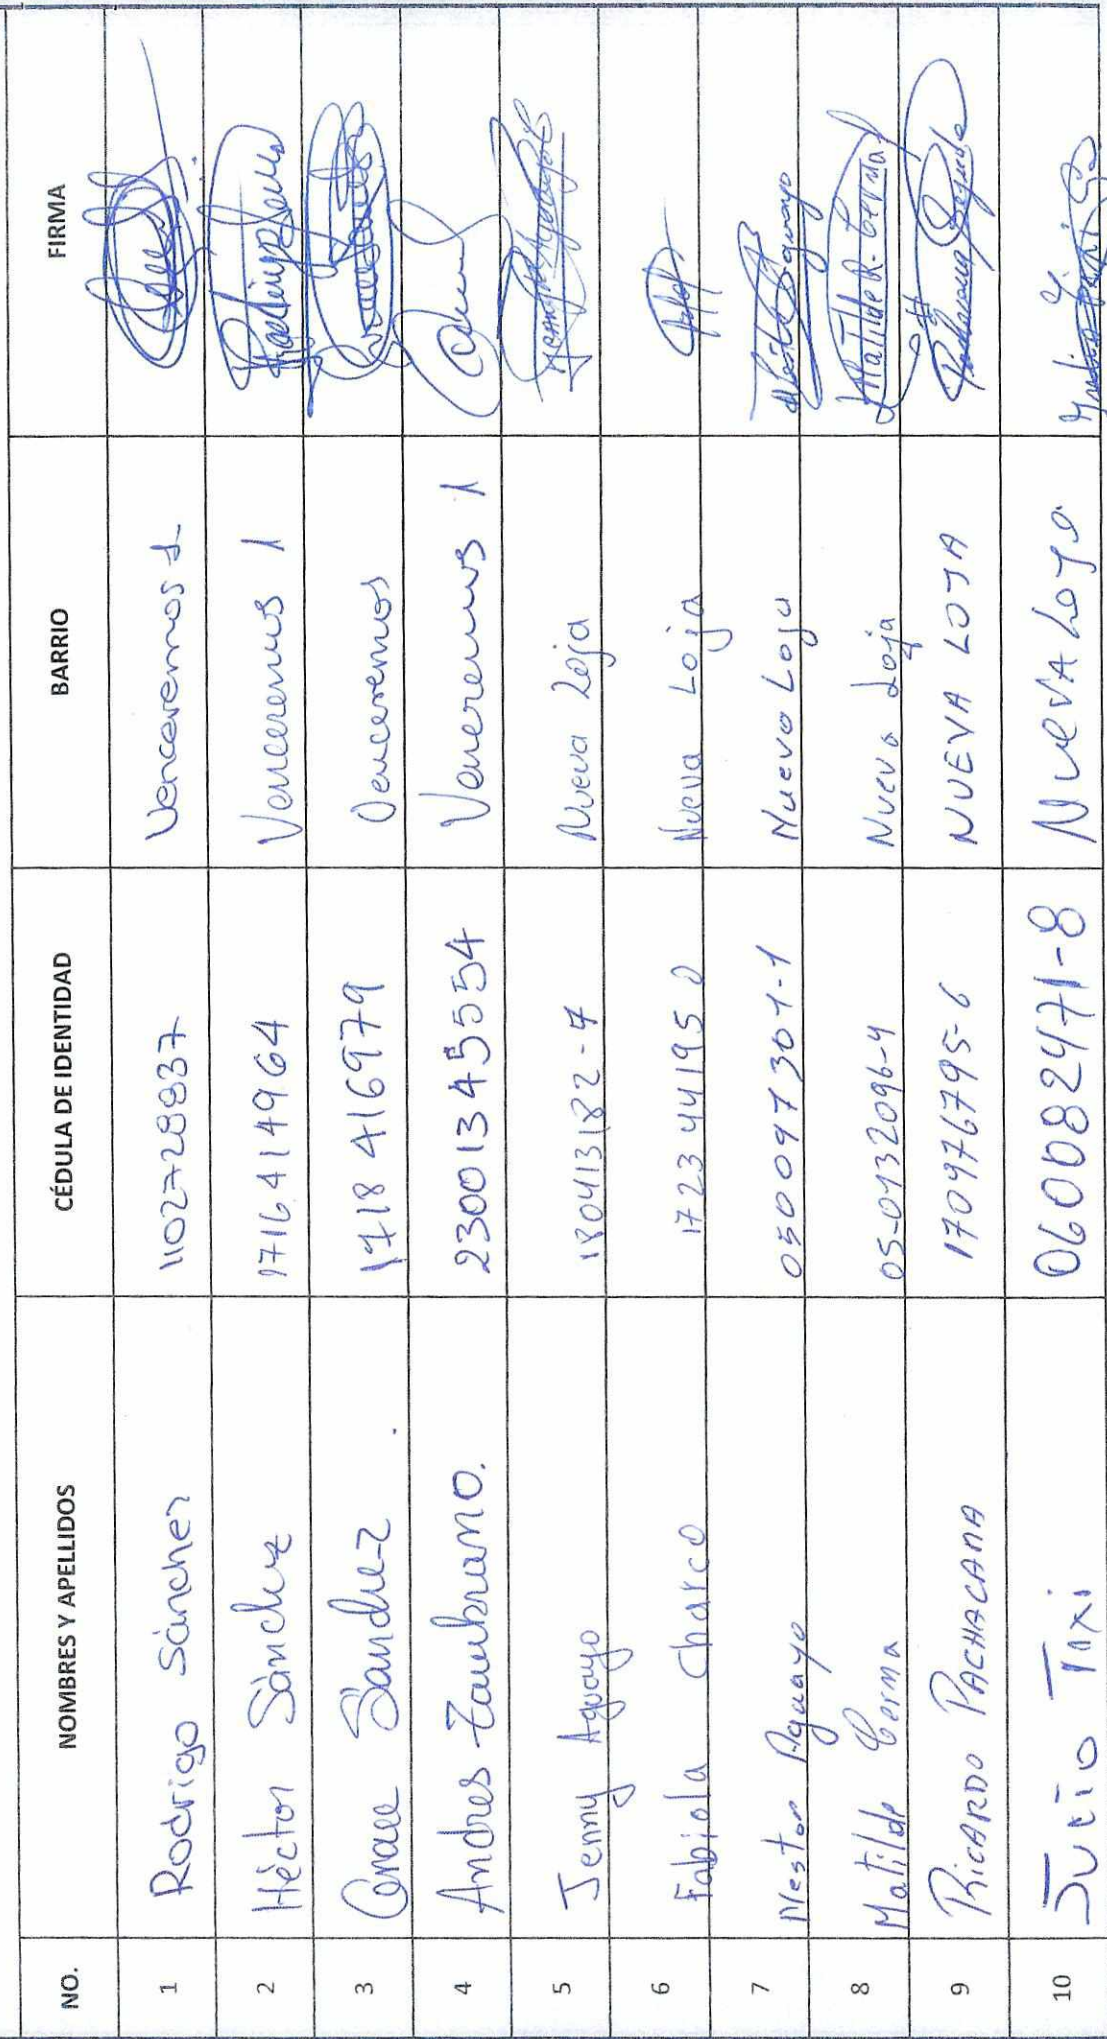 NO. NOMBRES Y APELLIDOS CÉDULA DE IDENTIDAD BARRIO FIRMA
1 Rodrigo Sánchez 1102728837 Venceremos 1
2 Héctor Sánchez 1716414964 Venceremos 1
3 Sánchez 1718416979 Venceremos
4 Andres Zambrano. 23001345554 Venceremos 1
5 Jenny Aguayo 180413182-7 Nueva Loja
6 Fabiola Charco 1723441950 Nueva Loja
7 Nestor Aguayo 050097301-1 Nueva Loja Nestor Aguayo
8 Matilde Cerna 05-0132096-4 Nueva Loja Matilde R. Cerna
9 RICARDO PACHACAMA 170976795-6 NUEVA LOJA
10 Julio Tixi 060082471-8 Nueva Loja